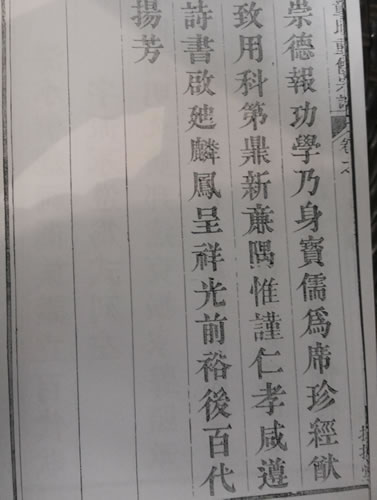 重修宗譜
卷之
崇德報功學乃身寶儒爲席珍經猷
致用科第鼎新亷隅惟謹仁孝咸遵
詩書啟廸麟鳳呈祥光前裕後百代
揚芳